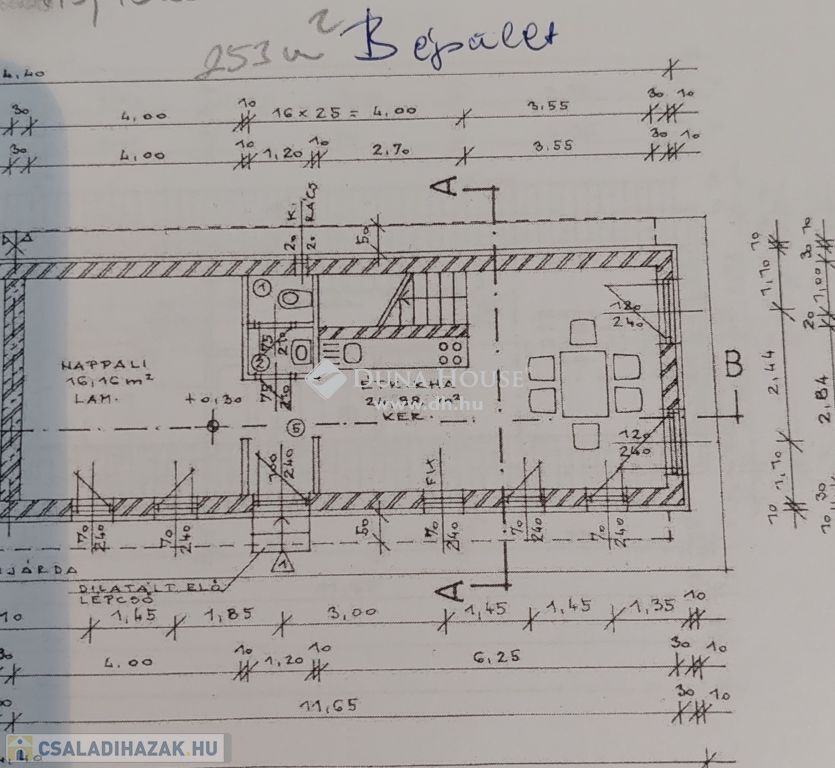 253 m² Beépület
4,40
30 4,00 10 16 × 25 = 4,00 3,55 30 10
30 4,00 10 1,20 10 2,70 3,55 30 10
A
20 K.
20 RÁCS
50
1
75
210
75
210
120
240
NAPPALI
16,16 m²
LAM.
+0,30
DUNA HOUSE
www.dh.hu
ÉTK.
24,88 m²
KER.
5
B
120
240
100
240
FIX
70
240
70
240
50
70
240
70
240
70
240
JÁRDA
1
DILATÁLT ELŐ
LÉPCSŐ
A
10 1,10 2,44 1,10 10
20 1,00 30 10
2,84
10 30
10 1,45 1,85 3,00 1,45 1,45 1,35 10
30 4,00 10 1,20 10 6,25 30 10
11,65 30 10
CSALADIHAZAK.HU